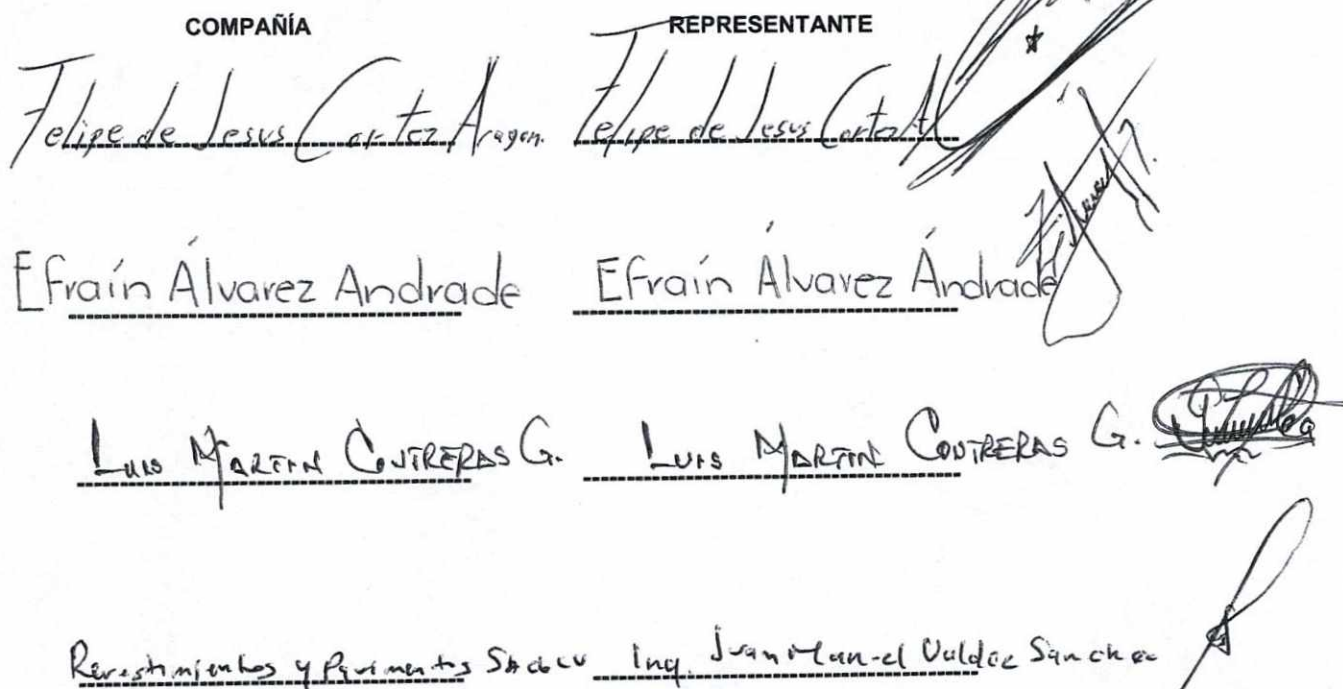 COMPAÑÍA REPRESENTANTE
Felipe de Jesus Cortez Aragon. Felipe de Jesus Cortez A
Efraín Álvarez Andrade Efraín Álvarez Ándrade
Luis Martin Contreras G. Luis Martin Contreras G.
Revestimientos y Pavimentos SA de CV Ing. Juan Manuel Valdez Sanchez